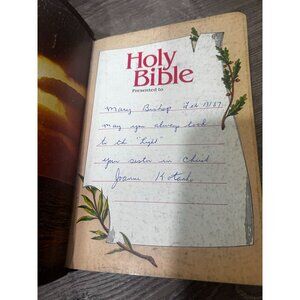 Holy
Bible
Presented to
Mary Bishop Feb 13/87
may you always look
to the "Light"
your sister in Christ
Joanne